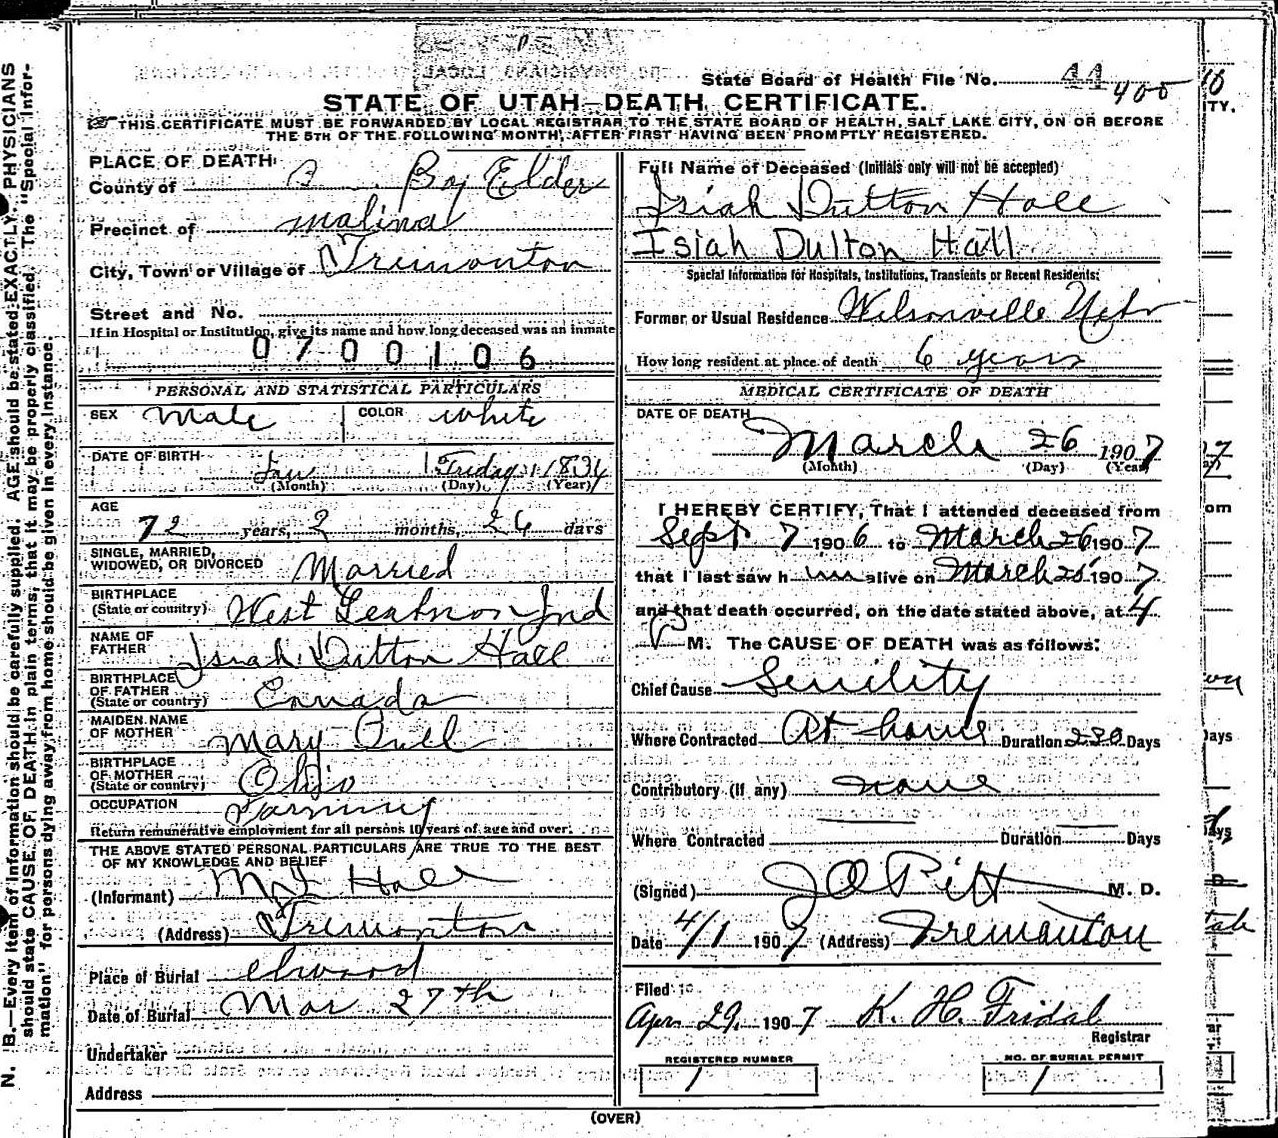 State Board of Health File No. 44 400
STATE OF UTAH—DEATH CERTIFICATE.
THIS CERTIFICATE MUST BE FORWARDED BY LOCAL REGISTRAR TO THE STATE BOARD OF HEALTH, SALT LAKE CITY, ON OR BEFORE
THE 5TH OF THE FOLLOWING MONTH, AFTER FIRST HAVING BEEN PROMPTLY REGISTERED.
PLACE OF DEATH:
County of Box Elder
Precinct of Malina
City, Town or Village of Tremonton
Street and No.
If in Hospital or Institution, give its name and how long deceased was an inmate
0700106
PERSONAL AND STATISTICAL PARTICULARS
SEX Male COLOR White
DATE OF BIRTH Jan Friday 1 1834
(Month) (Day) (Year)
AGE
72 years, 2 months, 26 days
SINGLE, MARRIED,
WIDOWED, OR DIVORCED Married
BIRTHPLACE
(State or country) West Ind
NAME OF
FATHER Isiah Dutton Hall
BIRTHPLACE
OF FATHER
(State or country) Canada
MAIDEN NAME
OF MOTHER Mary
BIRTHPLACE
OF MOTHER
(State or country) Ohio
OCCUPATION Farming
Return remunerative employment for all persons 10 years of age and over.
THE ABOVE STATED PERSONAL PARTICULARS ARE TRUE TO THE BEST
OF MY KNOWLEDGE AND BELIEF
(Informant) Hall
(Address) Tremonton
Place of Burial Elwood
Date of Burial Mar 27th
Undertaker
Address
Full Name of Deceased (Initials only will not be accepted)
Isiah Dutton Hall
Isiah Dulton Hall
Special Information for Hospitals, Institutions, Transients or Recent Residents:
Former or Usual Residence Wilsonville Nebr
How long resident at place of death 6 years
MEDICAL CERTIFICATE OF DEATH
DATE OF DEATH
March 26 1907
(Month) (Day) (Year)
I HEREBY CERTIFY, That I attended deceased from
Sept 7 1906 to March 26 1907
that I last saw him alive on March 25 1907
and that death occurred, on the date stated above, at 4
P M. The CAUSE OF DEATH was as follows:
Chief Cause Senility
Where Contracted At home Duration 230 Days
Contributory (if any) none
Where Contracted Duration Days
(Signed) J O Pitt M. D.
Date 4/1 1907 (Address) Tremonton
Filed
Apr 29, 1907 K. H. Fridal
Registrar
REGISTERED NUMBER
1
NO. OF BURIAL PERMIT
1
(OVER)
N. B.—Every item of information should be carefully supplied. AGE should be stated EXACTLY. PHYSICIANS
should state CAUSE OF DEATH in plain terms, that it may be properly classified. The "Special Infor-
mation" for persons dying away from home should be given in every instance.